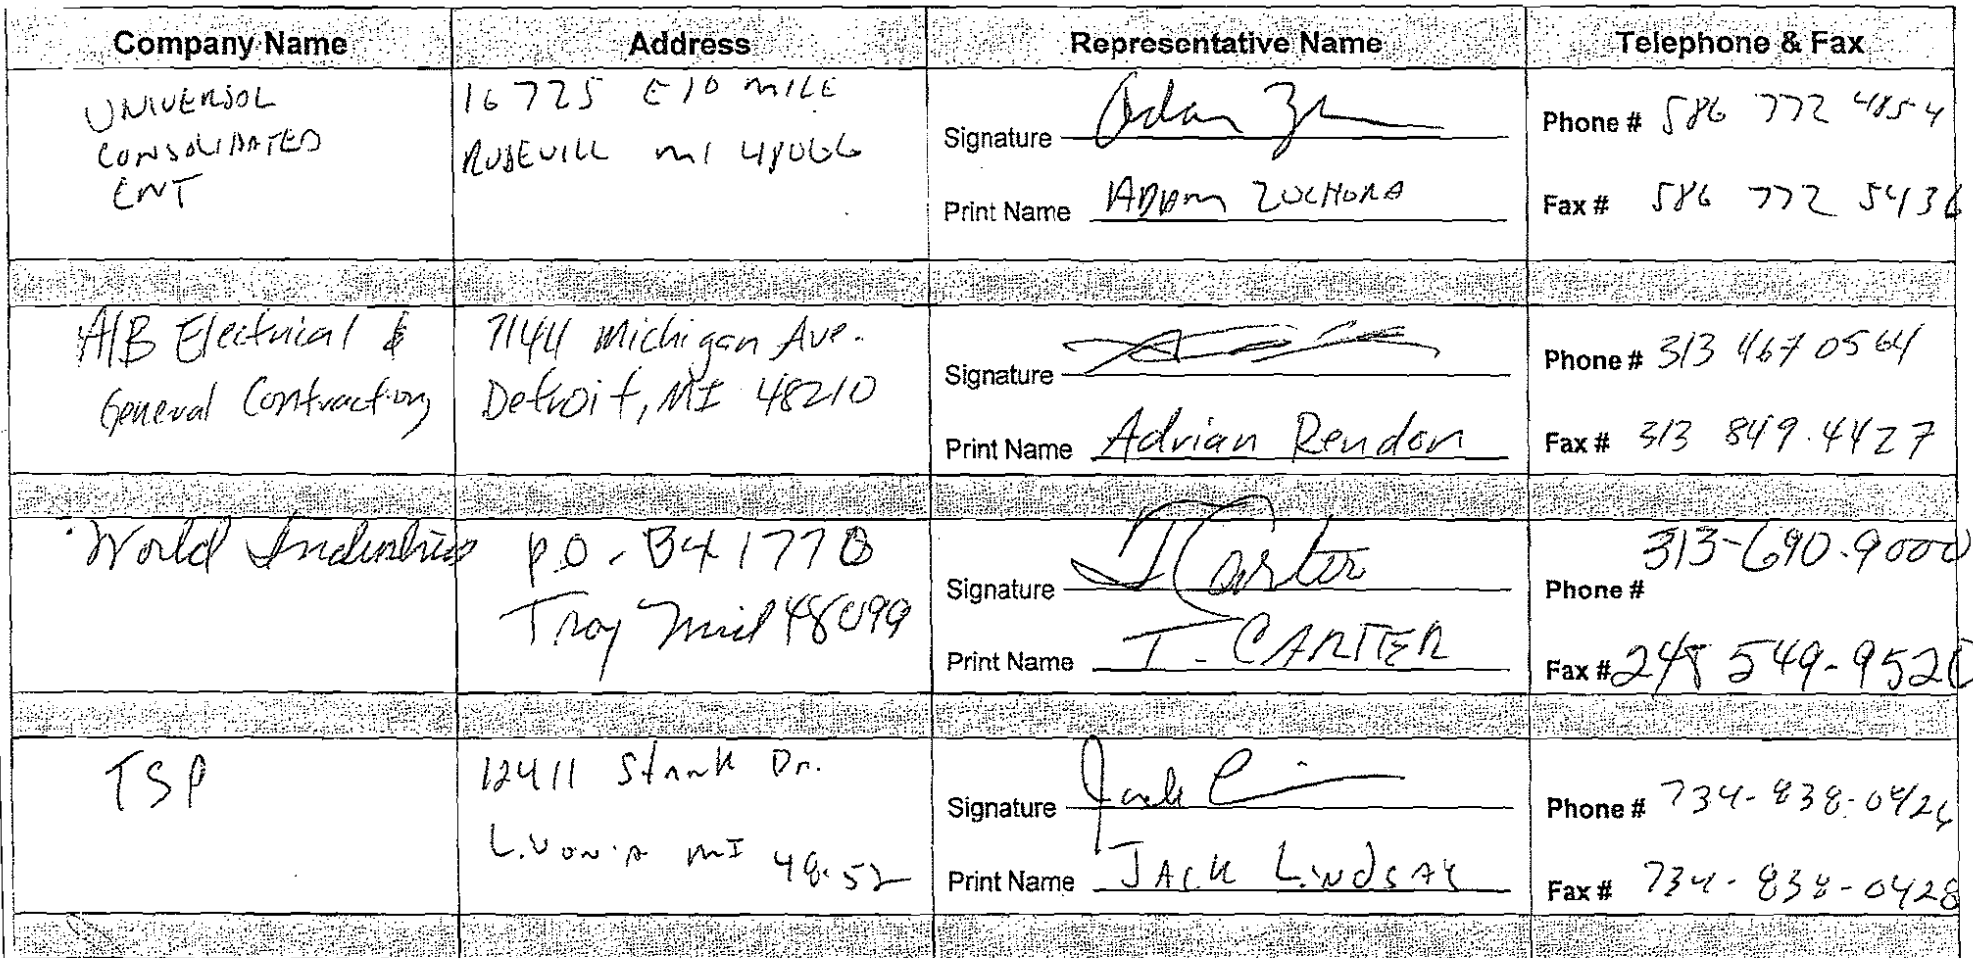 Company Name Address Representative Name Telephone & Fax
UNIVERSOL
CONSOLIDATED
ENT
16725 E 10 MILE
ROSEVILL MI 48066
Signature
Print Name ADAM ZUCHORA
Phone # 586 772 4854
Fax # 586 772 5436
A/B Electrical &
General Contracting
7144 Michigan Ave.
Detroit, MI 48210
Signature
Print Name Adrian Rendon
Phone # 313 467 0564
Fax # 313 849.4427
World Industries
P.O. - B4 1770
Troy Mich 48099
Signature T Carter
Print Name T. CARTER
Phone # 313-690-9000
Fax # 248 549-9520
TSP
12411 Stark Dr.
Livonia MI 48152
Signature Jack
Print Name JACK LINDSAY
Phone # 734-838-0426
Fax # 734-838-0428